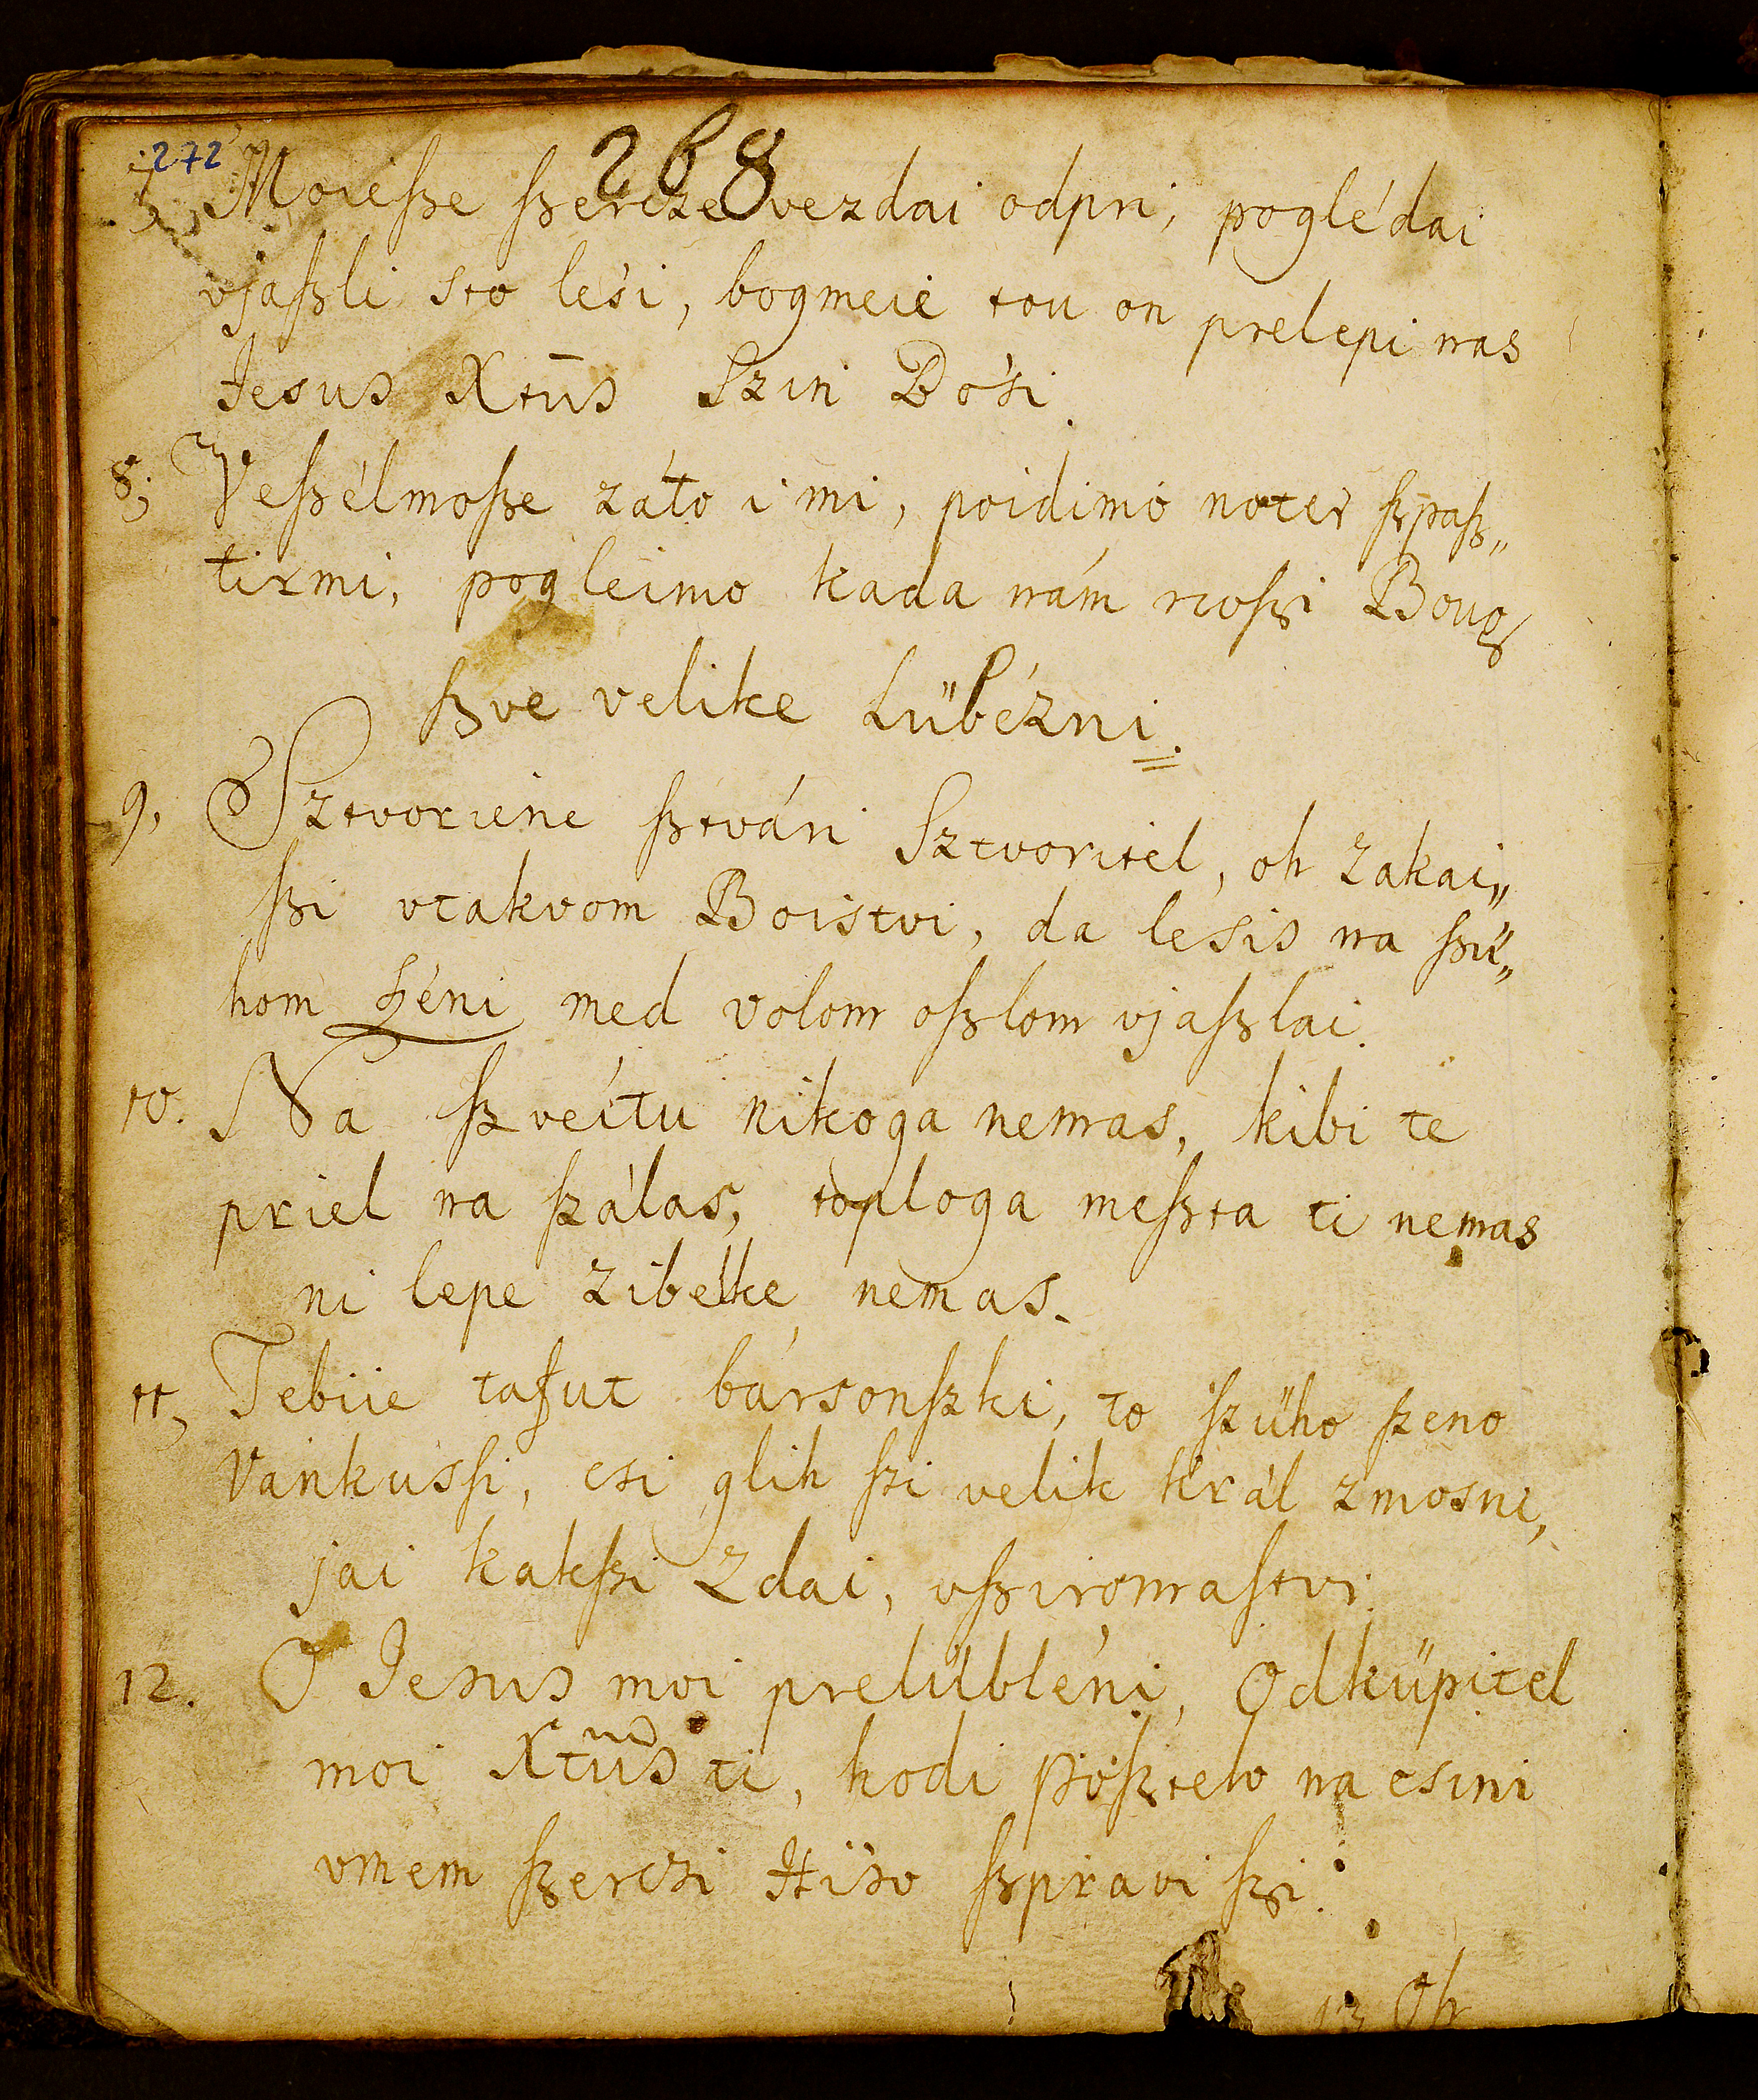 272
268
7, Moieſze ſzercze vezdai odpri, poglédai
vjaſzli sto leśi, bogmeie tou on prelepi nas
Jesus Xtūs Szin Bośi.
8; Veſzélmoſze záto i mi, poidimo noter ſzpaſz„
tirmi, pogleimo kada nám noſzi Boug
ſzve velike Lübézni.
9, Sztvoriene ſztvári Sztvoritel, oh zakai„
ſzi vtakvom Boistvi, da lesis na ſzü„
hom ſzéni med volom oſzlom vjaſzlai.
10. Na ſzveítu nikoga nemas, kibi te
priel na ſzálas, toploga meſzta ti nemas
ni lepe zibelke nemas.
11, Tebiie tafut bársonſzki, to ſzüho ſzeno
Vánkussi, csi glih ſzi velik král zmosni,
jai kakſzi zdai, vſziromaſtvi.
12. O Jesus moi prelübléni, Odküpitel
moi Xtūs ti, hodi pöſztelo na csini
vmem ſzerczi Hiso ſzpravi ſzi.
13 Oh